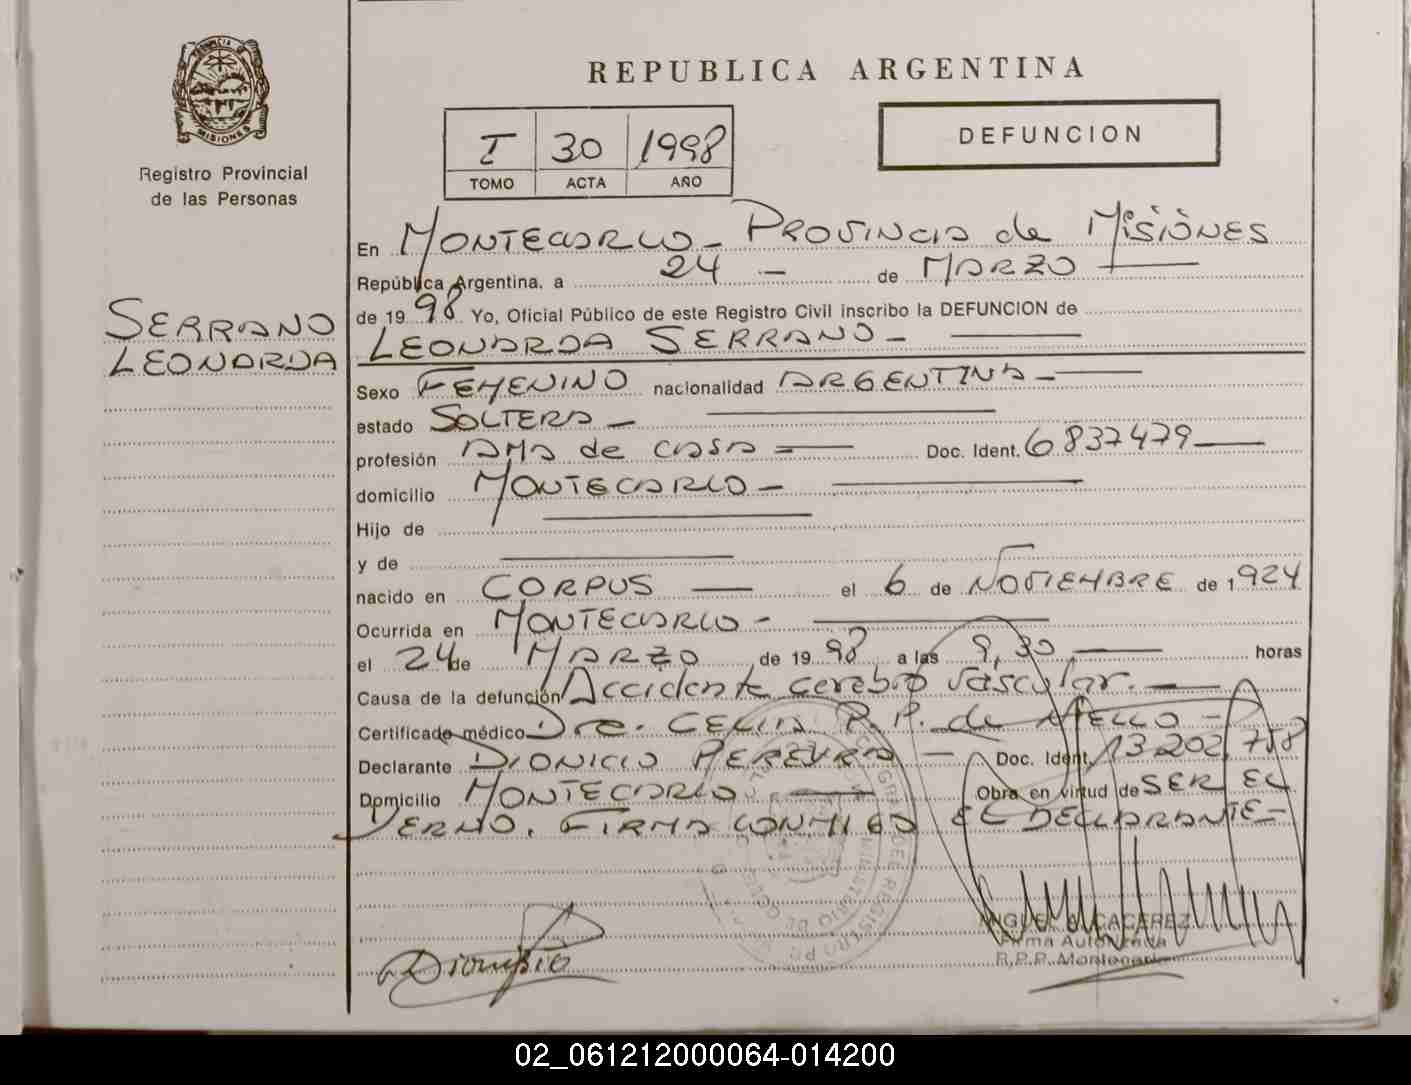 PROVINCIA DE
MISIONES
Registro Provincial
de las Personas
SERRANO
LEONARDA
REPUBLICA ARGENTINA
I 30 1998
TOMO ACTA AÑO
DEFUNCION
En MONTECARLO - PROVINCIA de MISIONES
República Argentina, a 24 - de MARZO
de 1998 Yo, Oficial Público de este Registro Civil inscribo la DEFUNCION de
LEONARDA SERRANO -
Sexo FEMENINO nacionalidad ARGENTINA -
estado SOLTERA -
profesión AMA de CASA = Doc. Ident. 6837479
domicilio MONTECARLO -
Hijo de
y de
nacido en CORPUS el 6 de NOVIEMBRE de 1924
Ocurrida en MONTECARLO -
el 24 de MARZO de 1998 a las 9,30 horas
Causa de la defunción Accidente cerebro vascular.
Certificado médico Dra. CELIA P. P. de AIELLO -
Declarante DIONICIO PEREYRA - Doc. Ident. 13.202.758
Domicilio MONTECARLO Obra en virtud de SER EL
YERNO. FIRMA CONMIGO EL DECLARANTE -
MIGUEL A. CACEREZ
Firma Autorizada
R.P.P. Montecarlo
Dionisio
02_061212000064-014200